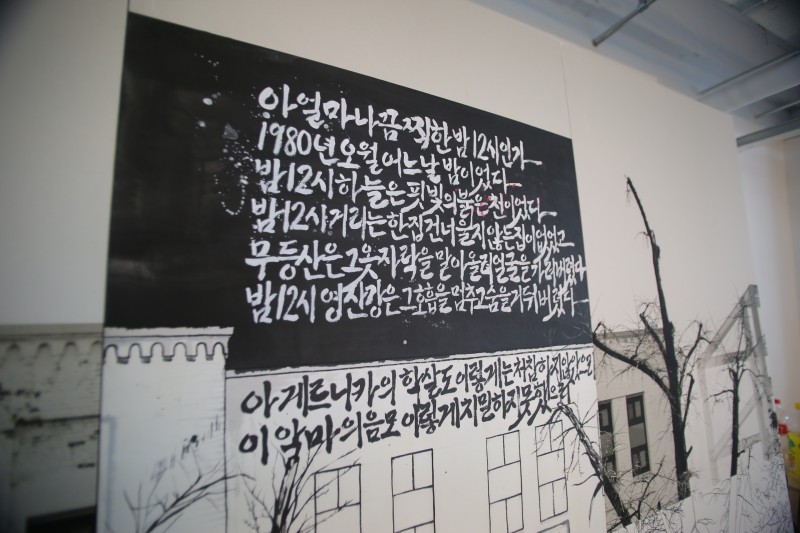 아 얼마나 끔찍한 밤 12시인가
1980년 오월 어느날 밤이었다
밤 12시 하늘은 핏빛의 붉은 천이었다
밤 12시 거리는 한집 건너 울지 않은 집이 없었고
무등산은 그 옷자락을 말아올려 얼굴을 가려버렸다
밤 12시 영산강은 그 호흡을 멈추고 숨을 거둬버렸다
아 게르니카의 학살도 이렇게는 처참하지 않았으리
이 악마의 음모 이렇게 치밀하지 못했으리